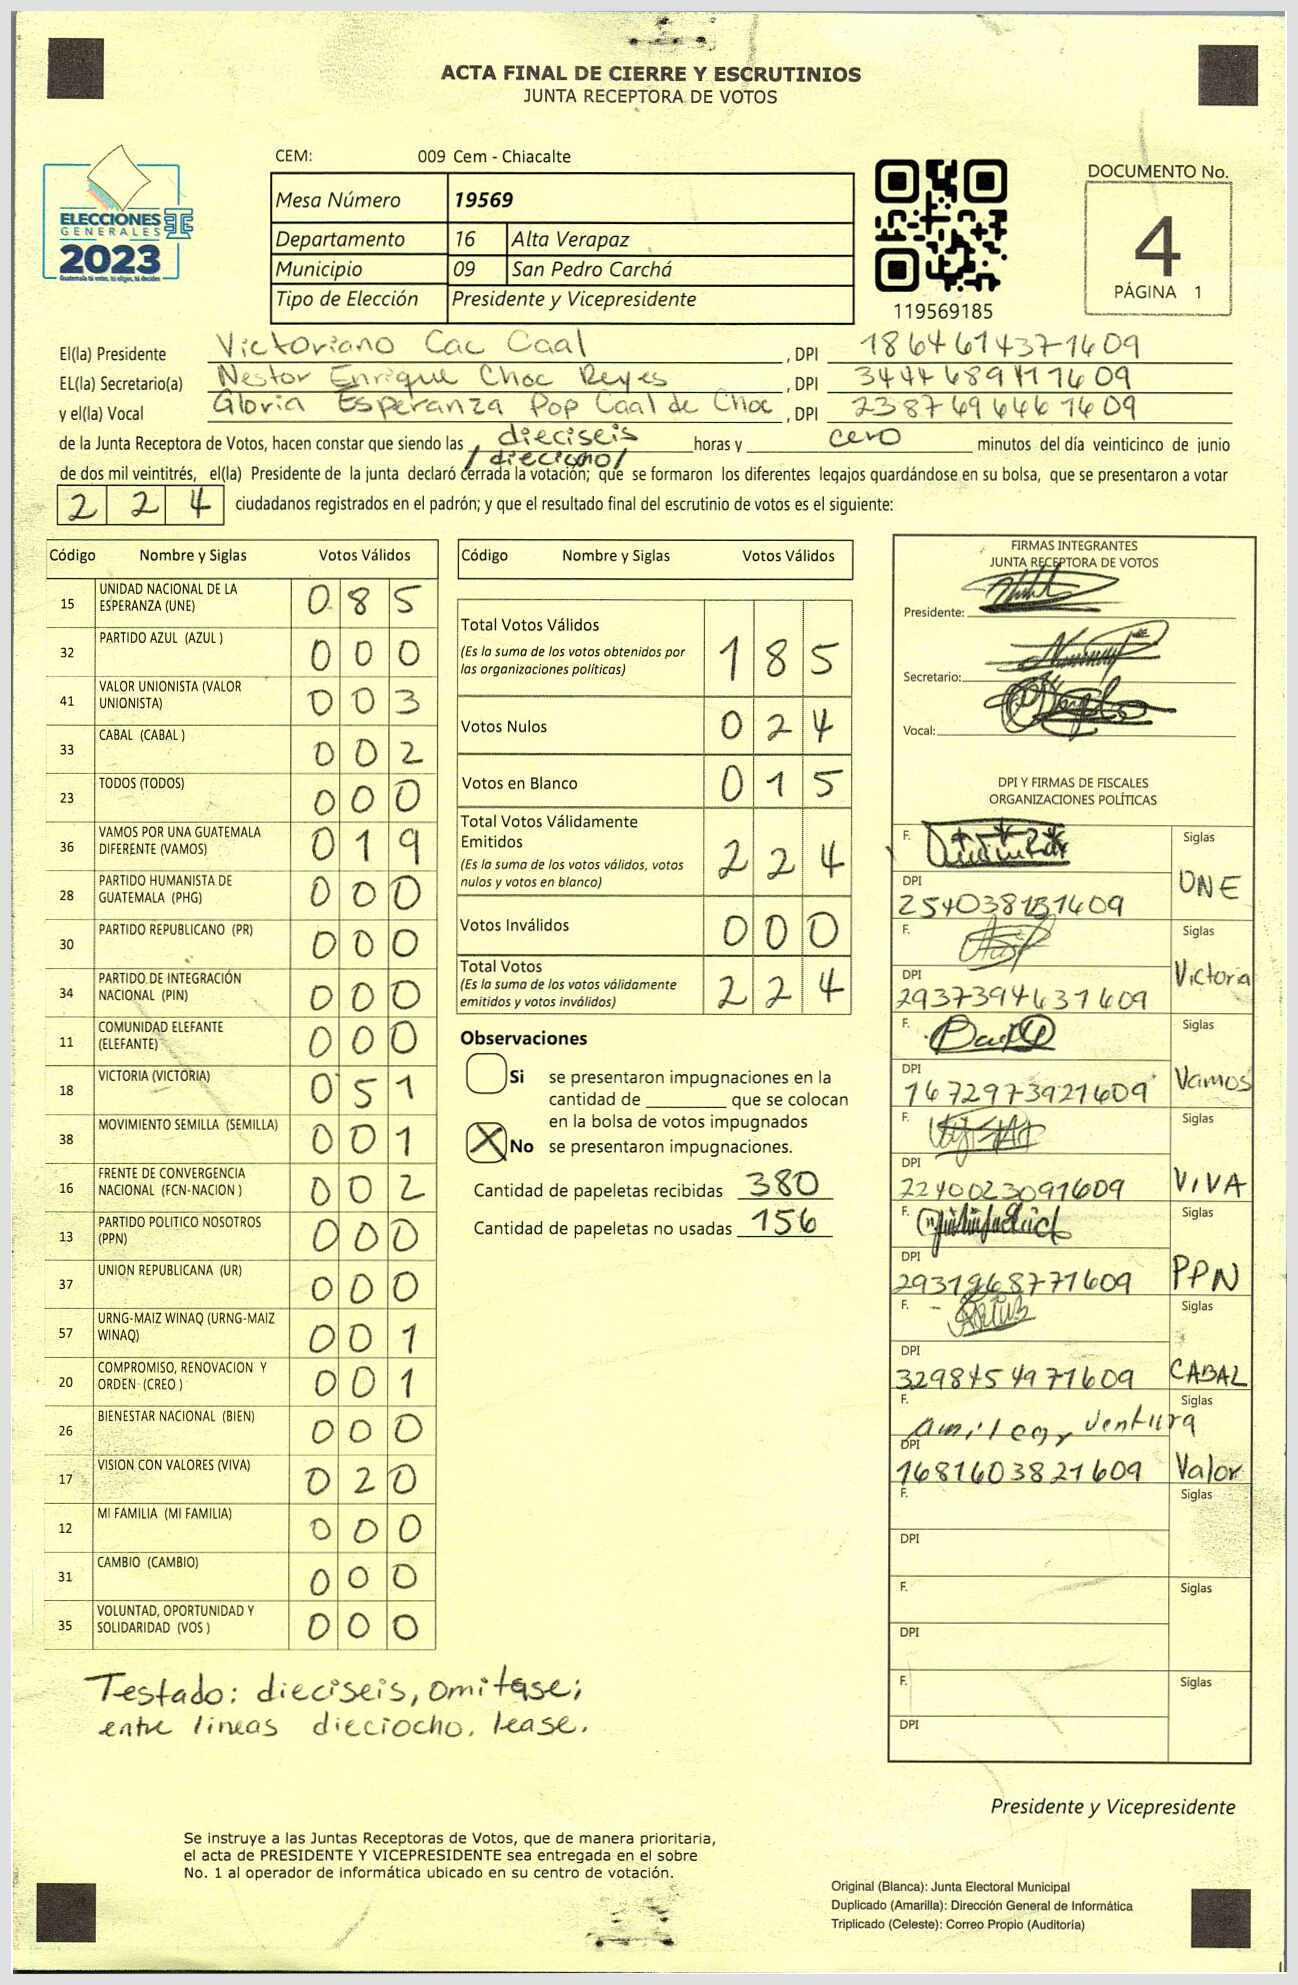 ACTA FINAL DE CIERRE Y ESCRUTINIOS
JUNTA RECEPTORA DE VOTOS
ELECCIONES
GENERALES
2023
Guatemala tú votas, tú eliges, tú decides
CEM: 009 Cem - Chiacalte
Mesa Número 19569
Departamento 16 Alta Verapaz
Municipio 09 San Pedro Carchá
Tipo de Elección Presidente y Vicepresidente
119569185
DOCUMENTO No.
4
PÁGINA 1
El(la) Presidente Victoriano Cac Caal, DPI 1864614371609
EL(la) Secretario(a) Nestor Enrique Choc Reyes, DPI 3444689411609
y el(la) Vocal Gloria Esperanza Pop Caal de Choc, DPI 2387696461609
de la Junta Receptora de Votos, hacen constar que siendo las dieciseis horas y cero minutos del día veinticinco de junio
/dieciocho/
de dos mil veintitrés, el(la) Presidente de la junta declaró cerrada la votación; que se formaron los diferentes legajos guardándose en su bolsa, que se presentaron a votar
224 ciudadanos registrados en el padrón; y que el resultado final del escrutinio de votos es el siguiente:
Código Nombre y Siglas Votos Válidos
15 UNIDAD NACIONAL DE LA ESPERANZA (UNE) 085
32 PARTIDO AZUL (AZUL ) 000
41 VALOR UNIONISTA (VALOR UNIONISTA) 003
33 CABAL (CABAL ) 002
23 TODOS (TODOS) 000
36 VAMOS POR UNA GUATEMALA DIFERENTE (VAMOS) 019
28 PARTIDO HUMANISTA DE GUATEMALA (PHG) 000
30 PARTIDO REPUBLICANO (PR) 000
34 PARTIDO DE INTEGRACIÓN NACIONAL (PIN) 000
11 COMUNIDAD ELEFANTE (ELEFANTE) 000
18 VICTORIA (VICTORIA) 051
38 MOVIMIENTO SEMILLA (SEMILLA) 001
16 FRENTE DE CONVERGENCIA NACIONAL (FCN-NACION ) 002
13 PARTIDO POLITICO NOSOTROS (PPN) 000
37 UNION REPUBLICANA (UR) 000
57 URNG-MAIZ WINAQ (URNG-MAIZ WINAQ) 001
20 COMPROMISO, RENOVACION Y ORDEN (CREO ) 001
26 BIENESTAR NACIONAL (BIEN) 000
17 VISION CON VALORES (VIVA) 020
12 MI FAMILIA (MI FAMILIA) 000
31 CAMBIO (CAMBIO) 000
35 VOLUNTAD, OPORTUNIDAD Y SOLIDARIDAD (VOS ) 000
Testado: dieciseis, omitase;
entre lineas dieciocho. lease.
Código Nombre y Siglas Votos Válidos
Total Votos Válidos 185
(Es la suma de los votos obtenidos por
las organizaciones políticas)
Votos Nulos 024
Votos en Blanco 015
Total Votos Válidamente
Emitidos 224
(Es la suma de los votos válidos, votos
nulos y votos en blanco)
Votos Inválidos 000
Total Votos 224
(Es la suma de los votos válidamente
emitidos y votos inválidos)
Observaciones
Si se presentaron impugnaciones en la
cantidad de ________ que se colocan
en la bolsa de votos impugnados
X No se presentaron impugnaciones.
Cantidad de papeletas recibidas 380
Cantidad de papeletas no usadas 156
FIRMAS INTEGRANTES
JUNTA RECEPTORA DE VOTOS
Presidente:
Secretario:
Vocal:
DPI Y FIRMAS DE FISCALES
ORGANIZACIONES POLÍTICAS
F. Siglas
DPI UNE
F. Siglas
DPI Victoria
2937394631609
F. Siglas
DPI Vamos
1672973921609
F. Siglas
DPI VIVA
2240023091609
F. Siglas
DPI PPN
2931268771609
F. Siglas
DPI CABAL
3298454971609
F. Amilcar Ventura Siglas
DPI Valor
1681603821609
F. Siglas
DPI
F. Siglas
DPI
F. Siglas
DPI
Presidente y Vicepresidente
Se instruye a las Juntas Receptoras de Votos, que de manera prioritaria,
el acta de PRESIDENTE Y VICEPRESIDENTE sea entregada en el sobre
No. 1 al operador de informática ubicado en su centro de votación.
Original (Blanca): Junta Electoral Municipal
Duplicado (Amarilla): Dirección General de Informática
Triplicado (Celeste): Correo Propio (Auditoria)